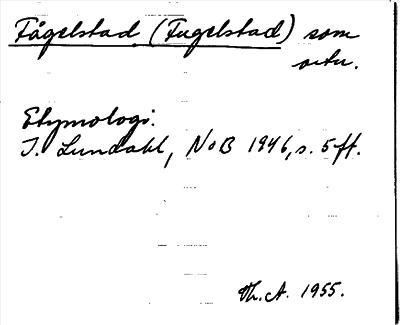 Fågelstad (Fugelstad) som
ortn.
Etymologi:
I. Lundahl, NoB 1946, s. 5 ff.
Th. A. 1955.